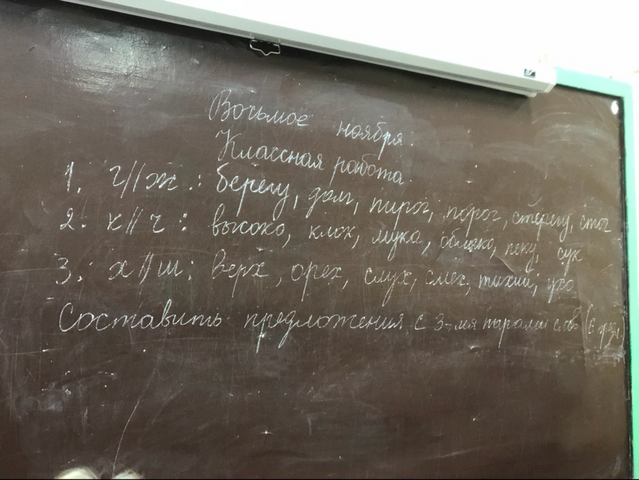 Восьмое ноября.
Классная работа.
1. г//ж.: берегу, долг, пирог, порог, стерегу, стог
2. к//ч: высоко, клок, мука, облако, пеку, сук
3. х//ш: верх, орех, слух, смех, тихий, ухо
Составить предложения с 3-мя парами слов (6